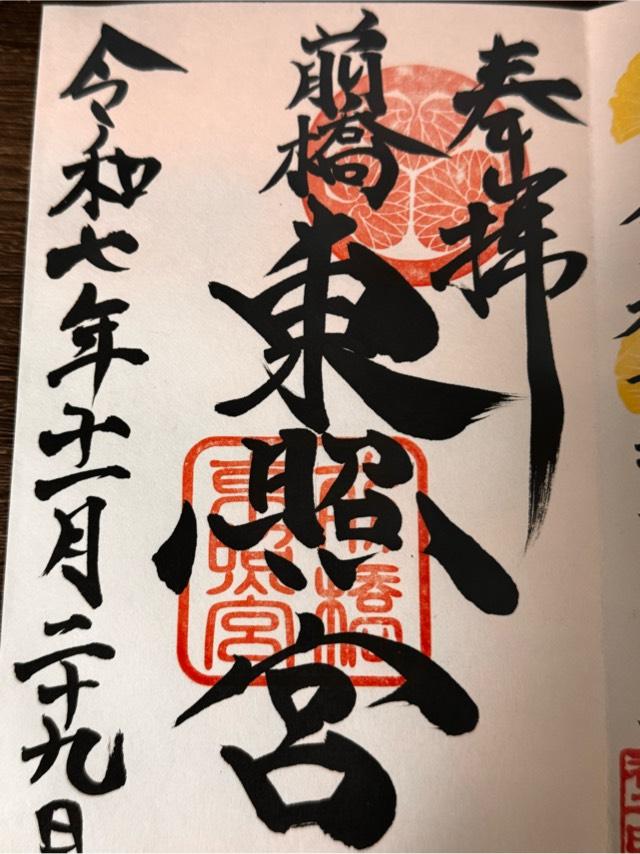 奉拝
前橋
東照宮
前橋
東照宮
令和七年十一月二十九日